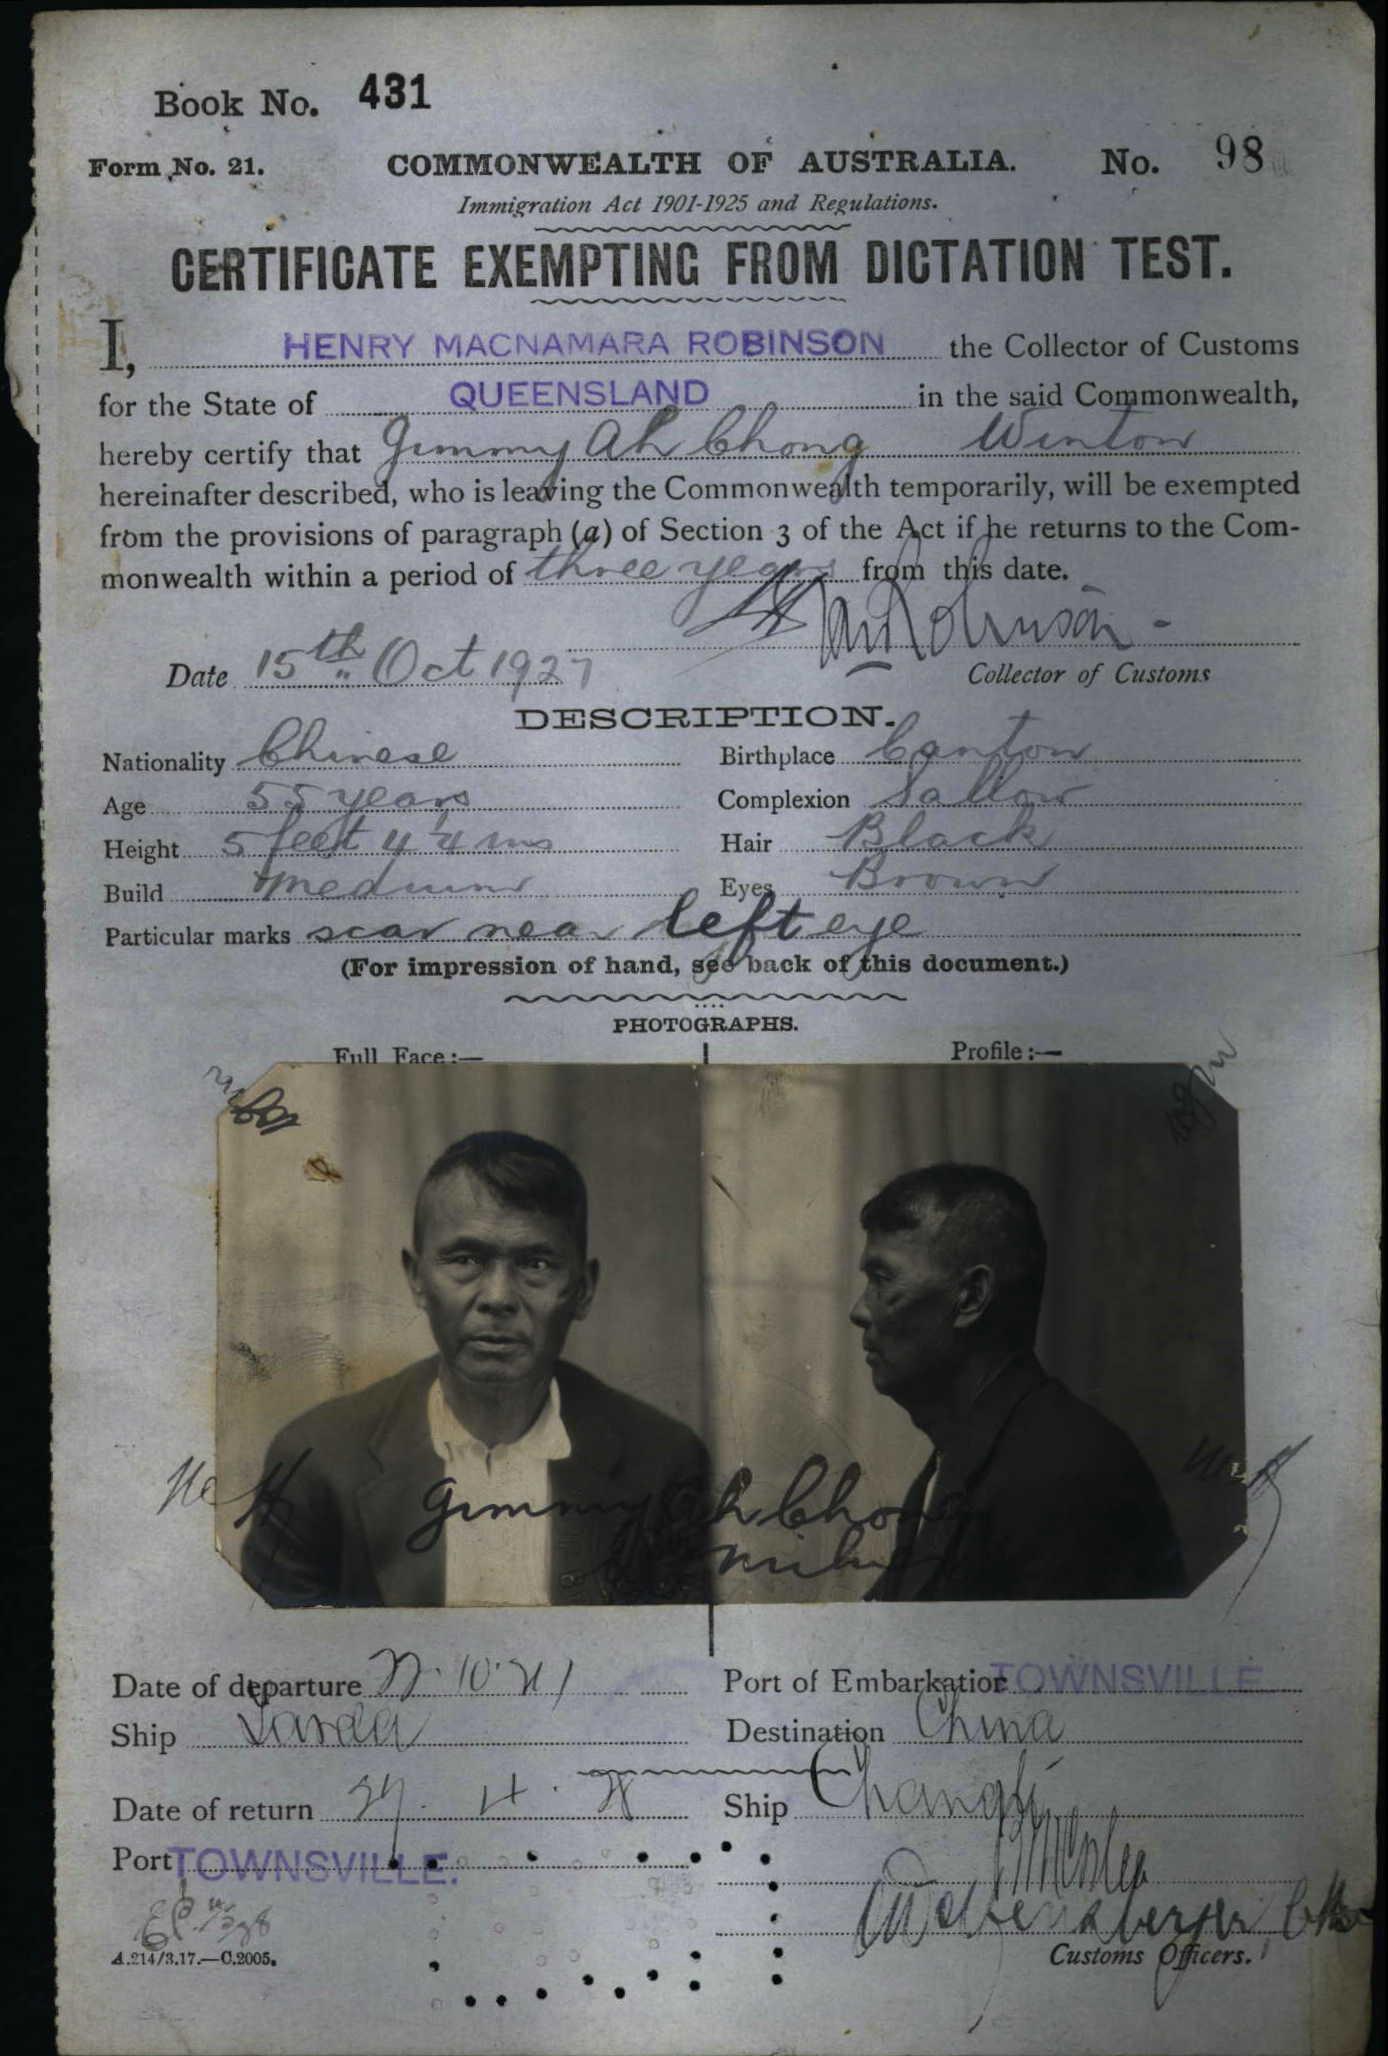 Book No. 431
Form No. 21. COMMONWEALTH OF AUSTRALIA. No. 98
Immigration Act 1901-1925 and Regulations.
CERTIFICATE EXEMPTING FROM DICTATION TEST.
I, HENRY MACNAMARA ROBINSON the Collector of Customs
for the State of QUEENSLAND in the said Commonwealth,
hereby certify that Jimmy Ah Chong Winton
hereinafter described, who is leaving the Commonwealth temporarily, will be exempted
from the provisions of paragraph (a) of Section 3 of the Act if he returns to the Com-
monwealth within a period of three years from this date.
Robinson
Date 15th Oct 1927 Collector of Customs
DESCRIPTION.
Nationality Chinese Birthplace Canton
Age 55 years Complexion Sallow
Height 5 feet 4 1/4 ins Hair Black
Build medium Eyes Brown
Particular marks scar near left eye
(For impression of hand, see back of this document.)
PHOTOGRAPHS.
Full Face:— Profile:—
Jimmy Ah Chong
Date of departure Port of Embarkation TOWNSVILLE
Ship Destination China
Date of return Ship Changte
Port TOWNSVILLE.
A.214/3.17.—C.2005.
Customs Officers.